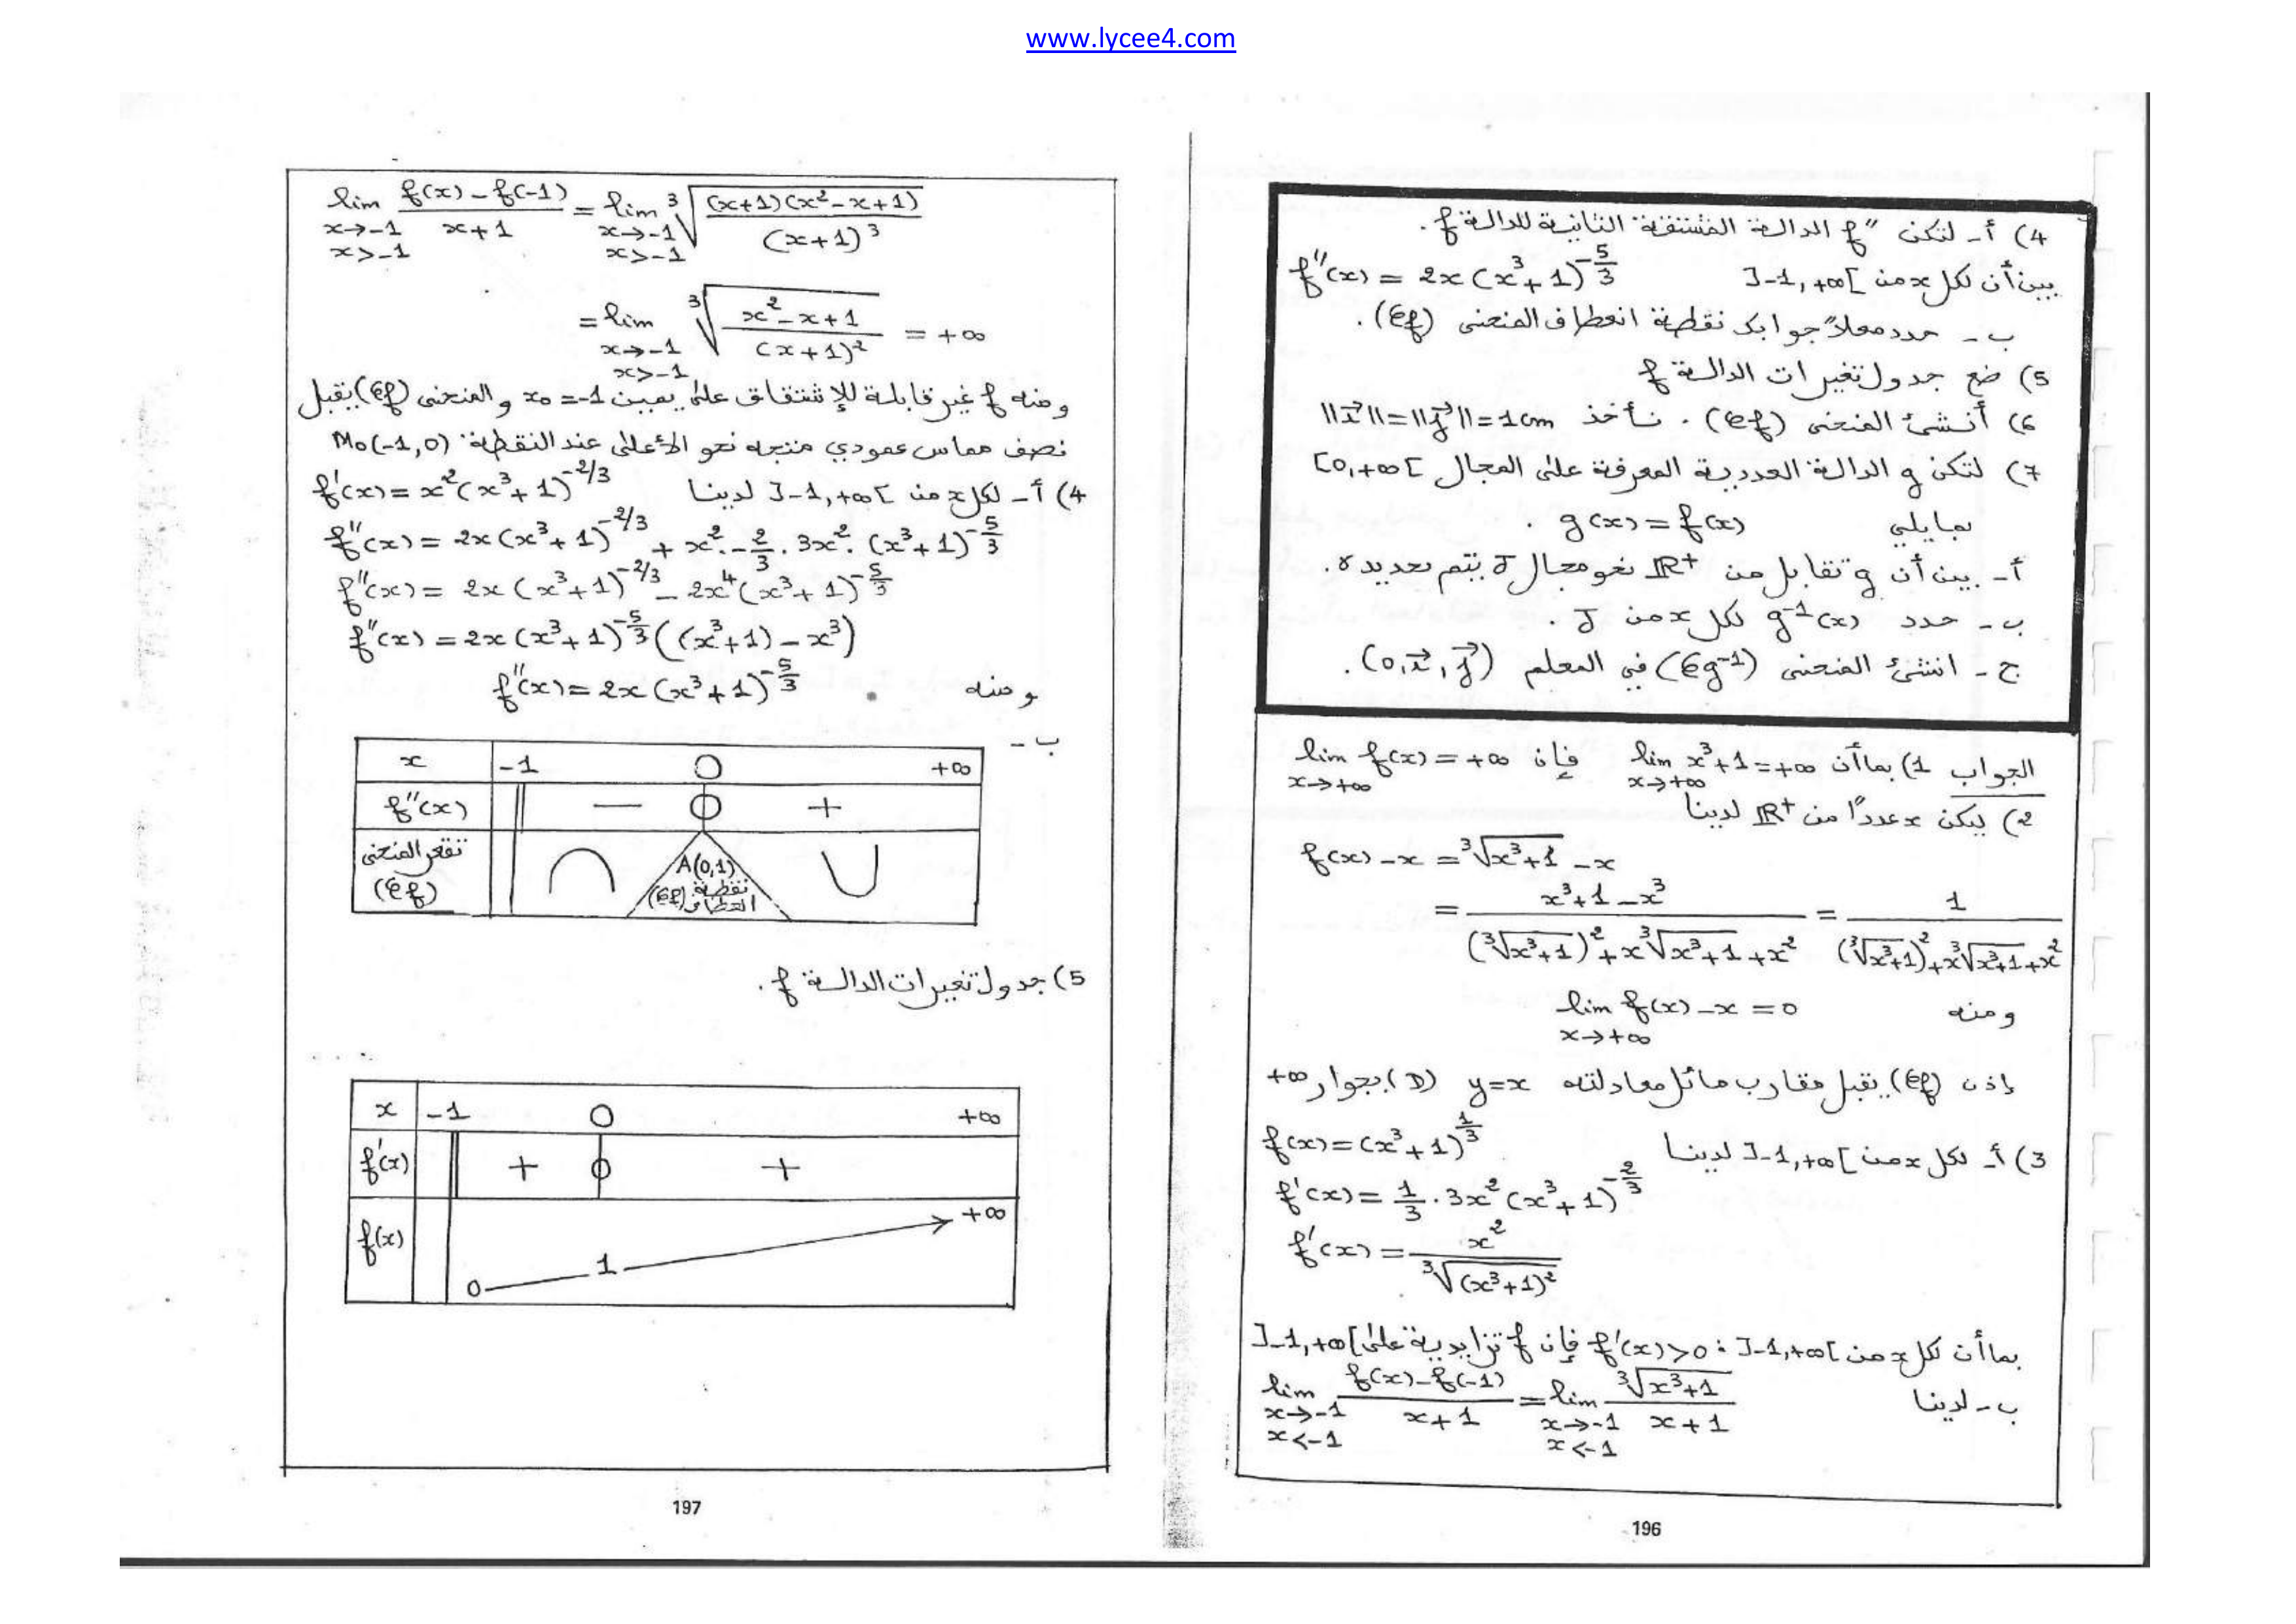 www.lycee4.com
4) أ- لتكن "f الدالة المشتقة الثانية للدالة f.
بين أن لكل x من ]-1,+∞[ f''(x) = 2x(x³+1)^(-5/3)
ب - حدد معللاً جوابك نقطة انعطاف المنحنى (𝒞f).
5) ضع جدول تغيرات الدالة f
6) أنشئ المنحنى (𝒞f). نأخذ ||i⃗||=||j⃗||=1cm
7) لتكن g الدالة العددية المعرفة على المجال [0,+∞[
بمايلي g(x)=f(x) .
أ- بين أن g تقابل من ℝ⁺ نحو مجال J يتم تحديده.
ب - حدد g⁻¹(x) لكل x من J.
ج - انشئ المنحنى (𝒞g⁻¹) في المعلم (0,i⃗,j⃗).
الجواب 1) بما أن lim_{x→+∞} x³+1=+∞ فإن lim_{x→+∞} f(x)=+∞
2) ليكن x عدداً من ℝ⁺ لدينا
f(x)-x = ∛(x³+1) - x
= (x³+1-x³)/((∛(x³+1))²+x∛(x³+1)+x²) = 1/((∛(x³+1))²+x∛(x³+1)+x²)
ومنه lim_{x→+∞} f(x)-x = 0
إذن (𝒞f) يقبل مقارب مائل معادلته y=x (D) بجوار +∞
3) أ- لكل x من ]-1,+∞[ لدينا f(x)=(x³+1)^(1/3)
f'(x) = 1/3 . 3x²(x³+1)^(-2/3)
f'(x) = x²/∛((x³+1)²)
بما أن لكل x من ]-1,+∞[ : f'(x)>0 فإن f تزايدية على ]-1,+∞[
ب - لدينا lim_{x→-1, x<-1} (f(x)-f(-1))/(x+1) = lim_{x→-1, x<-1} ∛(x³+1)/(x+1)
196
lim_{x→-1, x>-1} (f(x)-f(-1))/(x+1) = lim_{x→-1, x>-1} ∛((x+1)(x²-x+1)/(x+1)³)
= lim_{x→-1, x>-1} ∛((x²-x+1)/(x+1)²) = +∞
ومنه f غير قابلة للإشتقاق على يمين x₀=-1 و المنحنى (𝒞f) يقبل
نصف مماس عمودي متجه نحو الأعلى عند النقطة M₀(-1,0)
4) أ- لكل x من ]-1,+∞[ لدينا f'(x)=x²(x³+1)^(-2/3)
f''(x) = 2x(x³+1)^(-2/3) + x².-2/3 . 3x².(x³+1)^(-5/3)
f''(x) = 2x(x³+1)^(-2/3) - 2x⁴(x³+1)^(-5/3)
f''(x) = 2x(x³+1)^(-5/3)((x³+1)-x³)
ومنه f''(x)=2x(x³+1)^(-5/3)
ب -
x -1 0 +∞
f''(x) - 0 +
تقعر المنحنى (𝒞f)
A(0,1)
نقطة
انعطاف (𝒞f)
5) جدول تغيرات الدالة f.
x -1 0 +∞
f'(x) + 0 +
f(x) 0 1 +∞
197